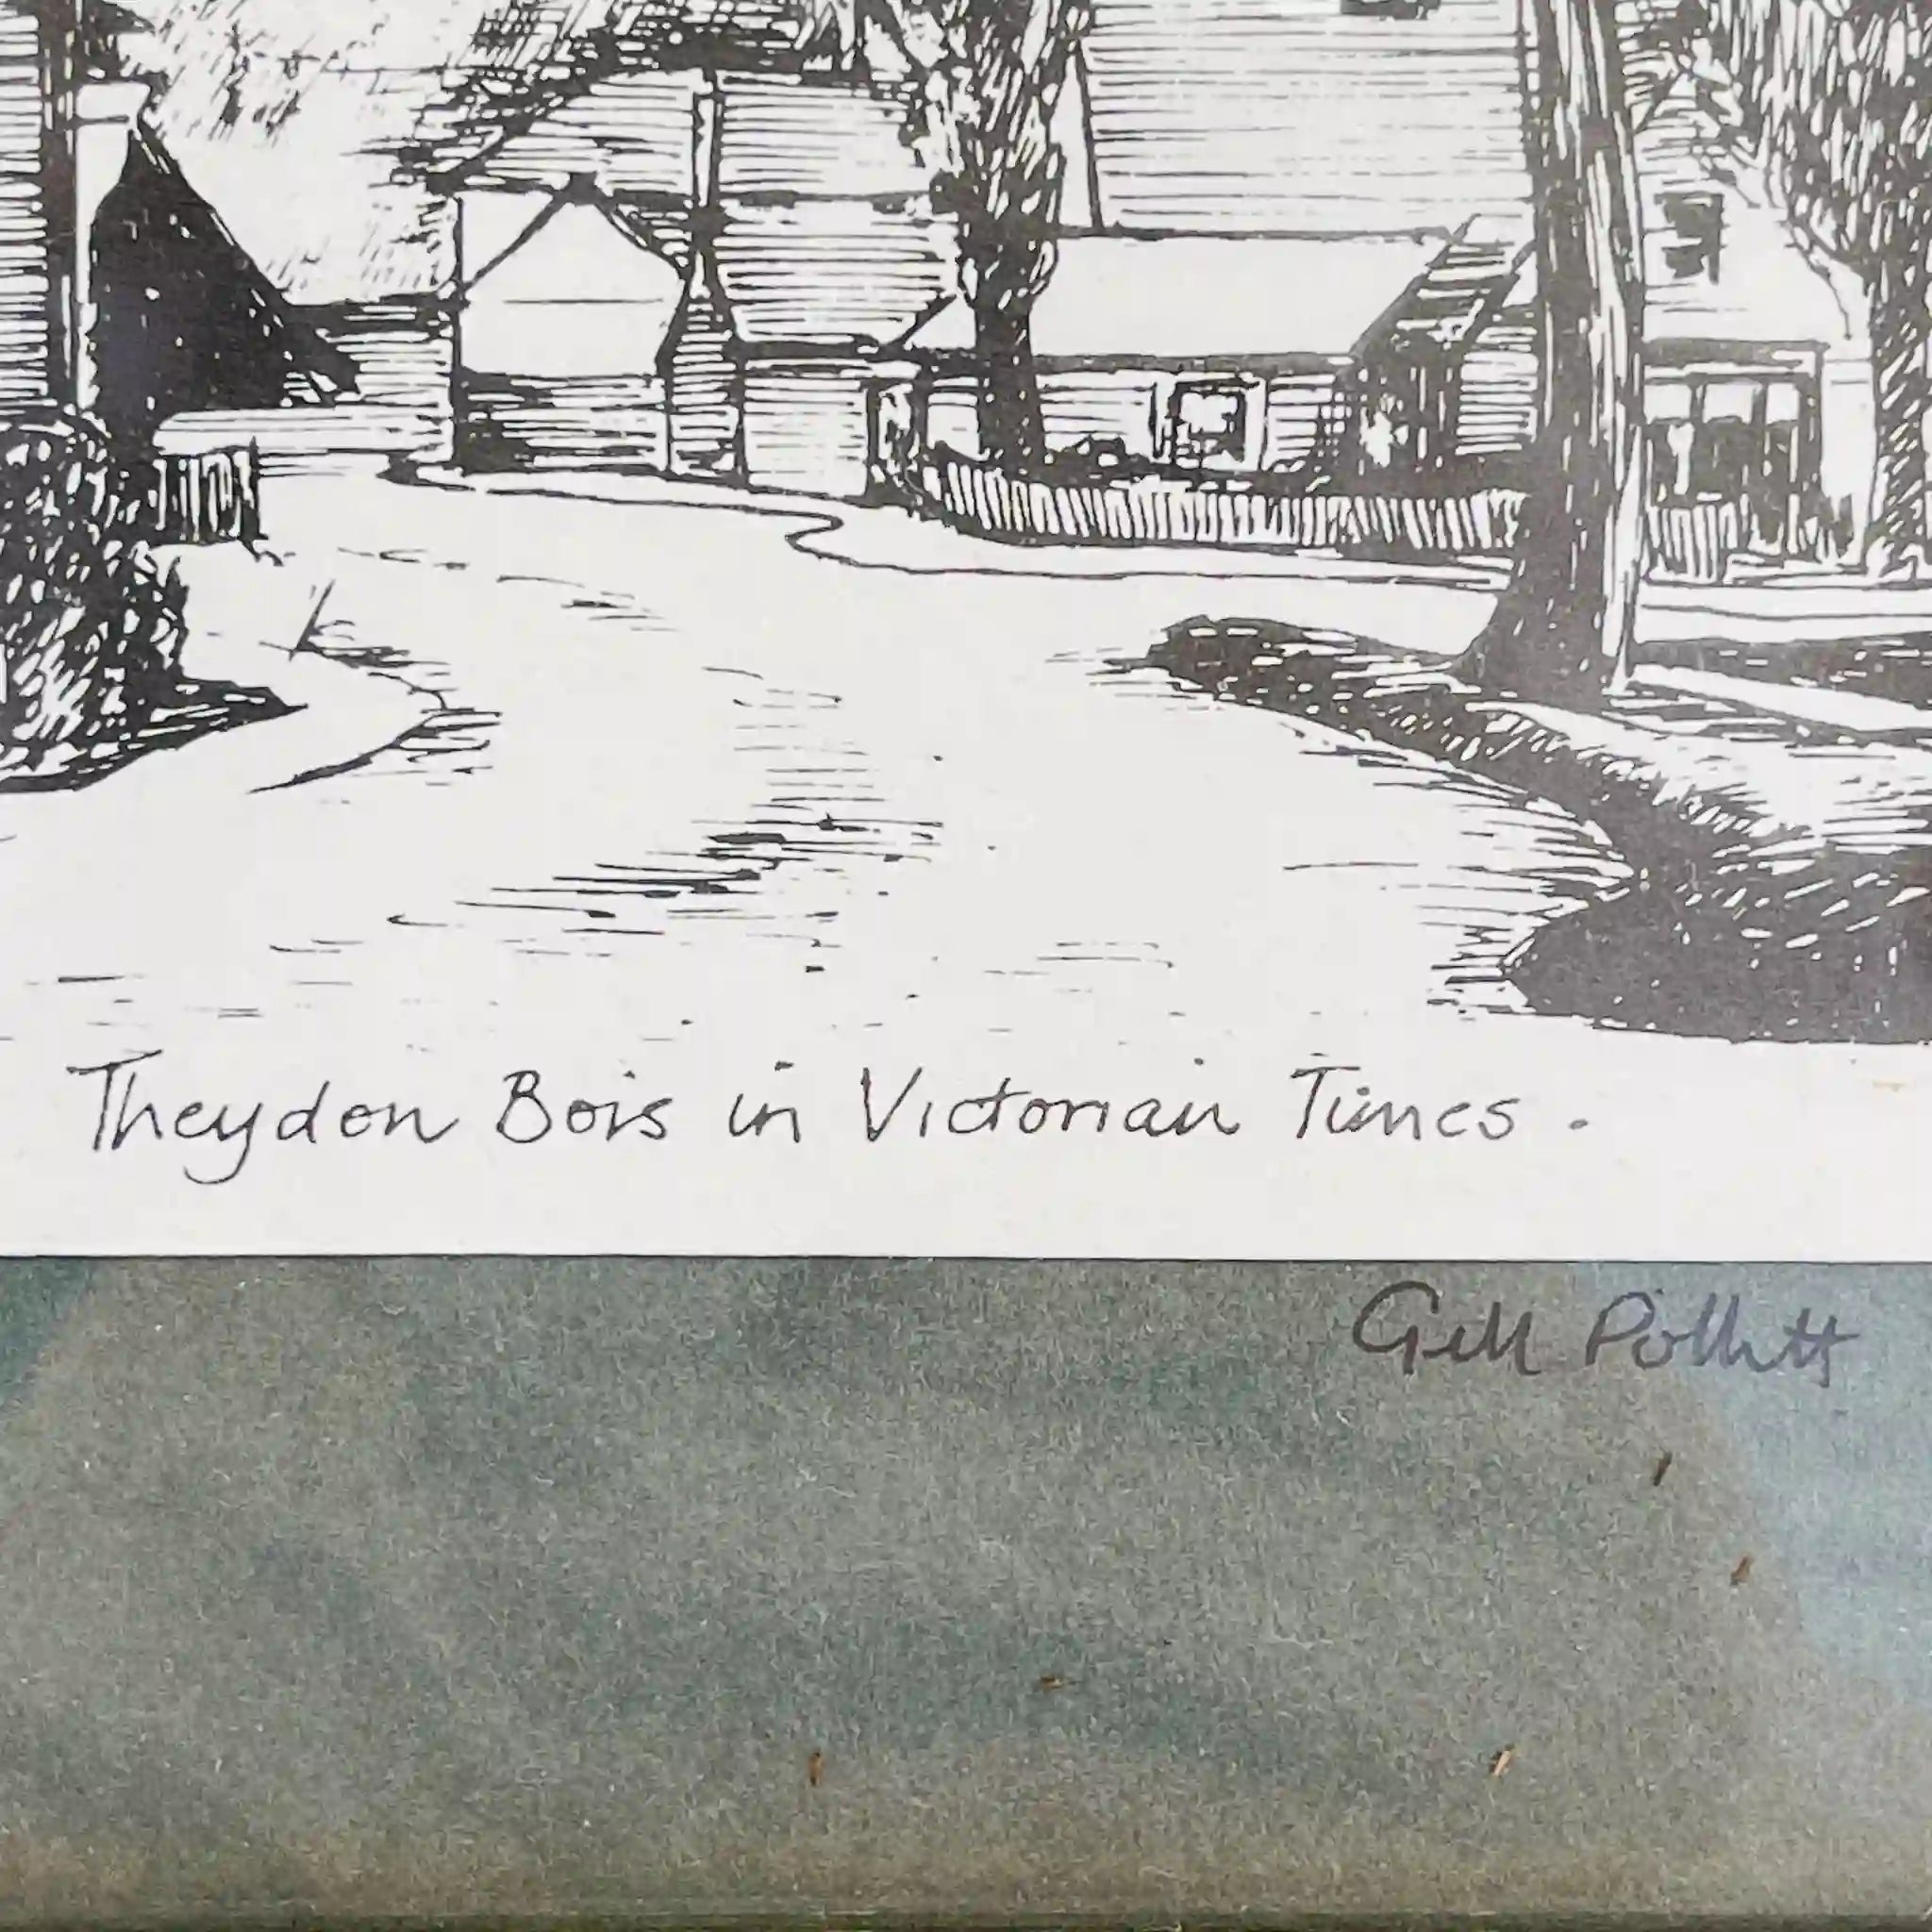 Theydon Bois in Victorian Times .
Gill Pollitt